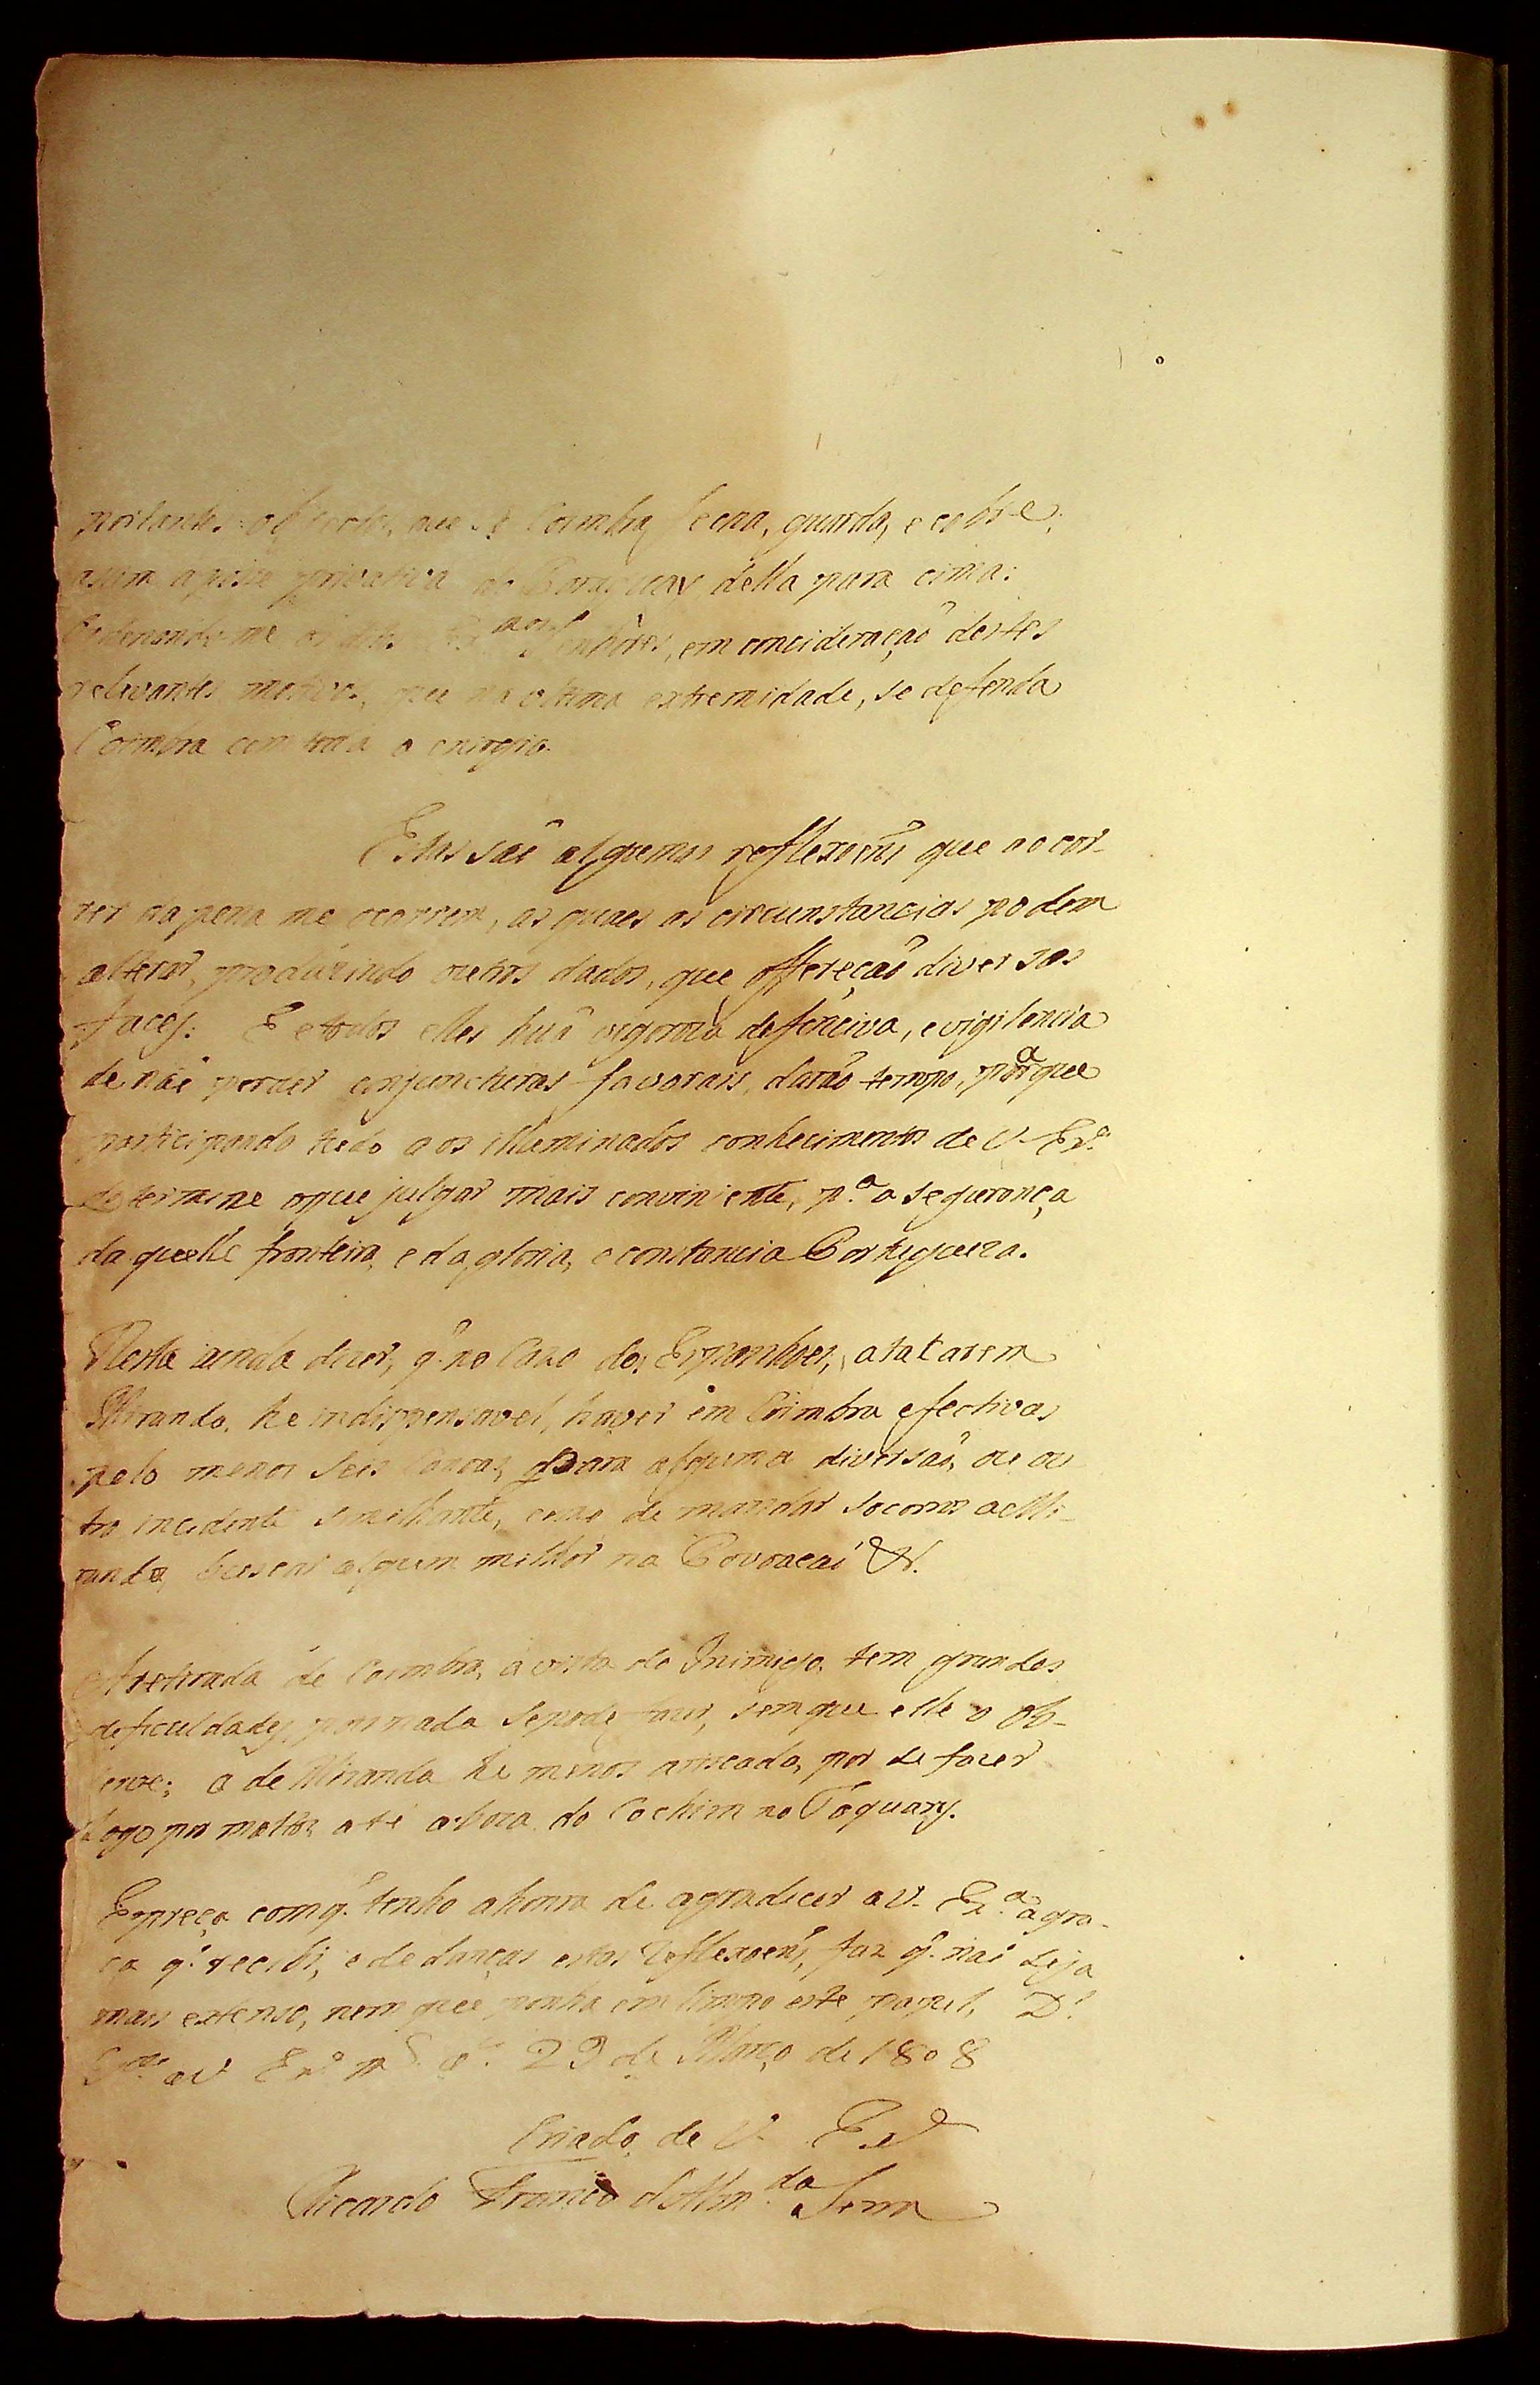 portantes objectos, que só Coimbra fecha, guarda, e cobre;
asim a posse privativa do Paraguay della para cima:
Senhores, em concideração destes
relevantes motivos, que na ultima extremidade, se defenda
Coimbra com toda a energia.
Estas são algumas reflexoens que ao cor-
rer da pena me ocorrem, as quaes as circunstancias podem
alterar, produzindo outros dados, que offereção diversas
faces. E a todos elles huã vigoroza defenciva, e vigilencia
de não perder conjuncturas favorais, darão tempo, paraque
participando tudo aos illuminados conhecimentos de V. Exª
determine oque julgar mais conviniente, pª a segurança
da quelle fronteira, e da gloria, e constancia Portugueza.
Resta ainda dizer, q. no Cazo dos Espanhoes, atacarem
Miranda, he indispensavel, haver em Coimbra efectivas
pelo menos seis Canoas, para alguma diversão, ou ou
tro incidente similhante, como de mandar socorros a Mi-
randa, buscar algum milhor na Povoação &.
A retirada de Coimbra, á vista do Inimigo, tem grandes
deficuldades, pois nada se pode fazer, sem que elle o ob-
serve; a de Miranda he menos arriscada, por se fazer
logo por mattos até a boca do Cochim no Taquary.
Espreça com q. tenho a honra de agradecer a V. Exª a gra-
ça q. recebi, e de estas Reflexoens, faz q. não seja
mais extenso, nem que ponha em limpo este papel, D.s
G.de a V. Exª m.s a.s 29 de Março de 1808
Criado de V. Exª
Ricardo Franco d'Alm.da Serra